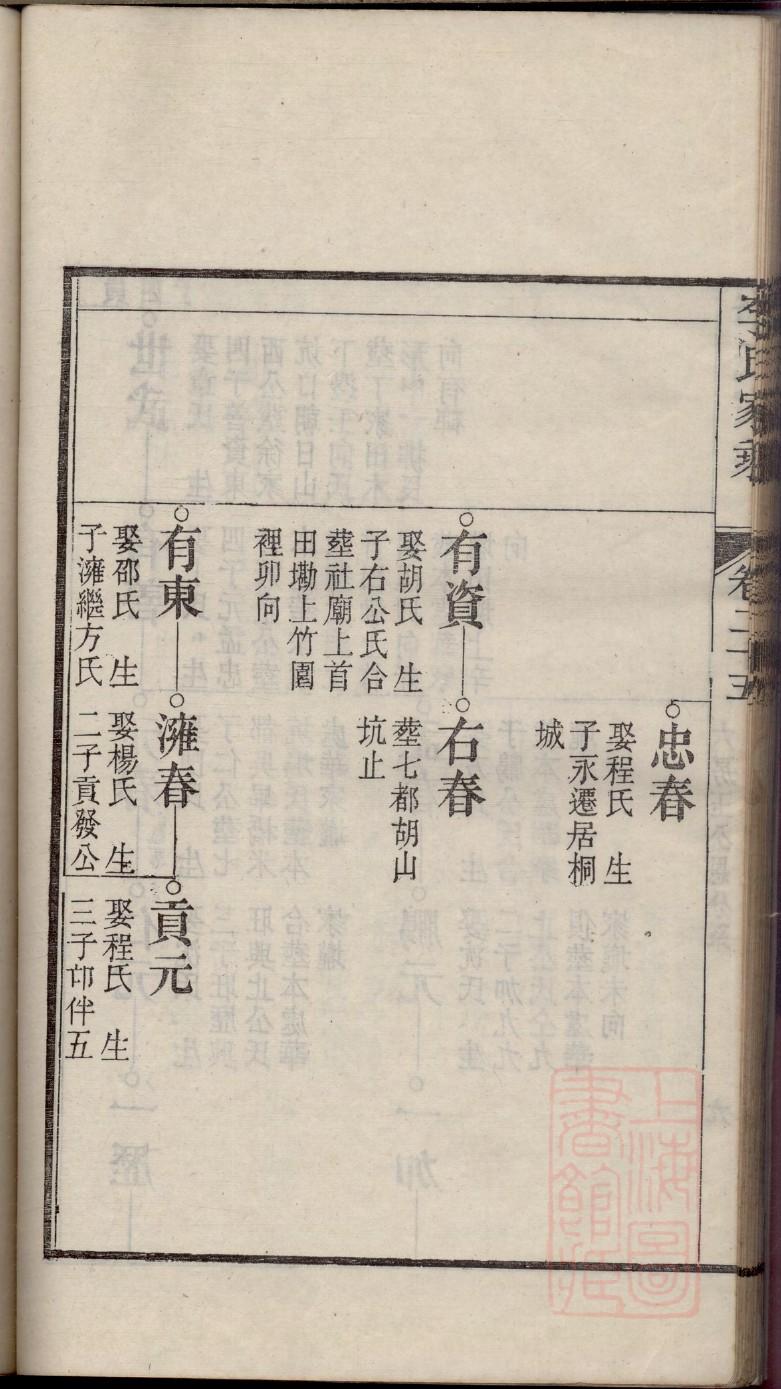 李氏家
卷二十五
忠春
娶程氏 生
子永遷居桐
城
有資
娶胡氏 生
子右公氏合
塟社廟上首
田墈上竹園
裡卯向
右春
塟七都胡山
坑止
有東
娶邵氏 生
子濰繼方氏
濰春
娶楊氏 生
二子貢發公
貢元
娶程氏 生
三子卬伴五
上海圖
書館藏